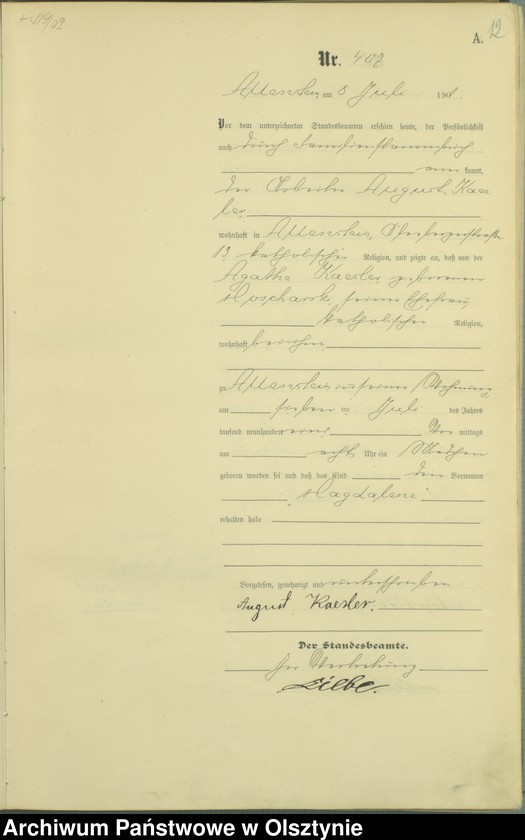 A. 12
Nr. 407
Allenstein, am 8 Juli 1901.
Vor dem unterzeichneten Standesbeamten erschien heute, der Persönlichkeit
nach durch Familienstammbuch
aner kannt,
der Arbeiter August Kaes
ler,
wohnhaft in Allenstein,
13, katholischer Religion, und zeigte an, daß von der
Agathe Kaesler geborenen
seiner Ehefrau,
katholischer Religion,
wohnhaft bei ihm
zu Allenstein in seiner Wohnung
am sieben ten Juli des Jahres
tausend neunhundert eins Vor mittags
um acht Uhr ein Mädchen
geboren worden sei und daß das Kind den Vornamen
Magdalene
erhalten habe
Vorgelesen, genehmigt und unterschrieben
August Kaesler.
Der Standesbeamte.
In Vertretung
Archiwum Państwowe w Olsztynie